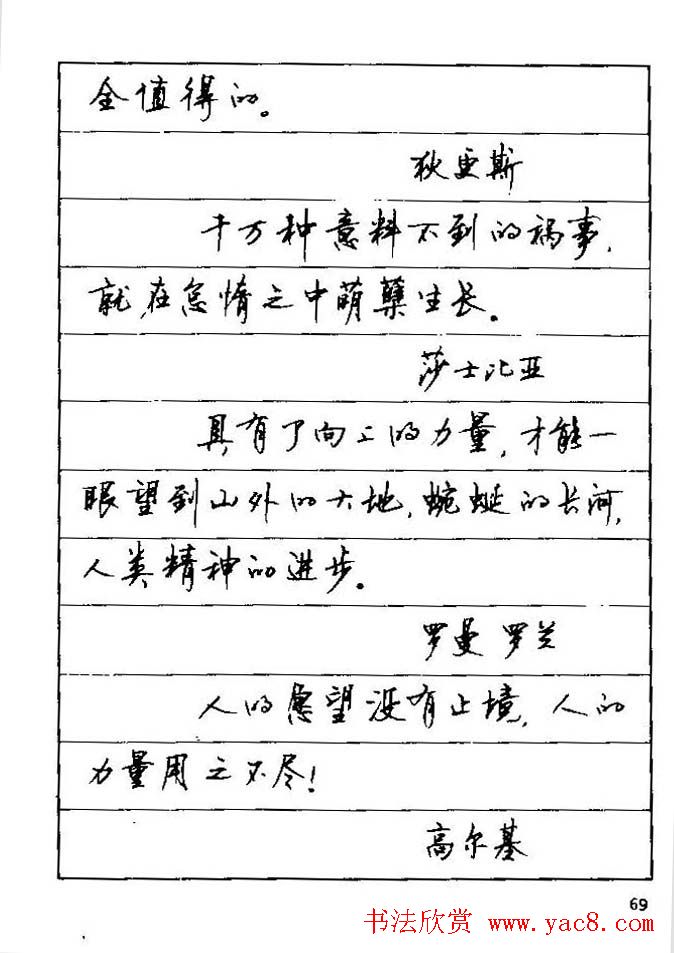 全值得的。
狄更斯
千万种意料不到的祸事，
就在怠惰之中萌孽生长。
莎士比亚
具有了向上的力量，才能一
眼望到山外的大地，蜿蜒的长河，
人类精神的进步。
罗曼 罗兰
人的愿望没有止境，人的
力量用之不尽！
高尔基
69
书法欣赏 www.yac8.com